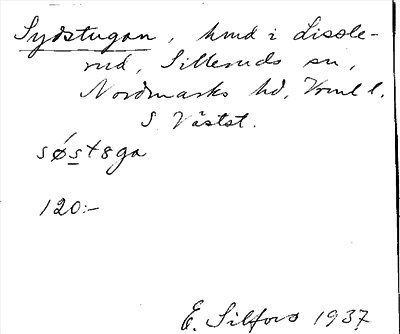 Sydstugan, hmd i Lissle-
rud, Silleruds sn,
Nordmarks hd, Vrml l.
S Västst.
søstsga
120:-
E. Silfors 1937